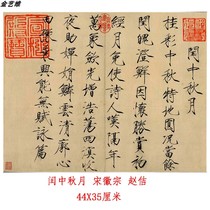 金艺雄
闰中秋月
桂彩中秋特地圆况当余
闰魄澄鲜因怀胜赏初
经月免使诗人叹隔年
万象敛光增浩荡四溟收
夜助婵娟鳞云清廓心
田豫乘兴能无赋咏篇
闰中秋月 宋徽宗 赵佶
44X35厘米